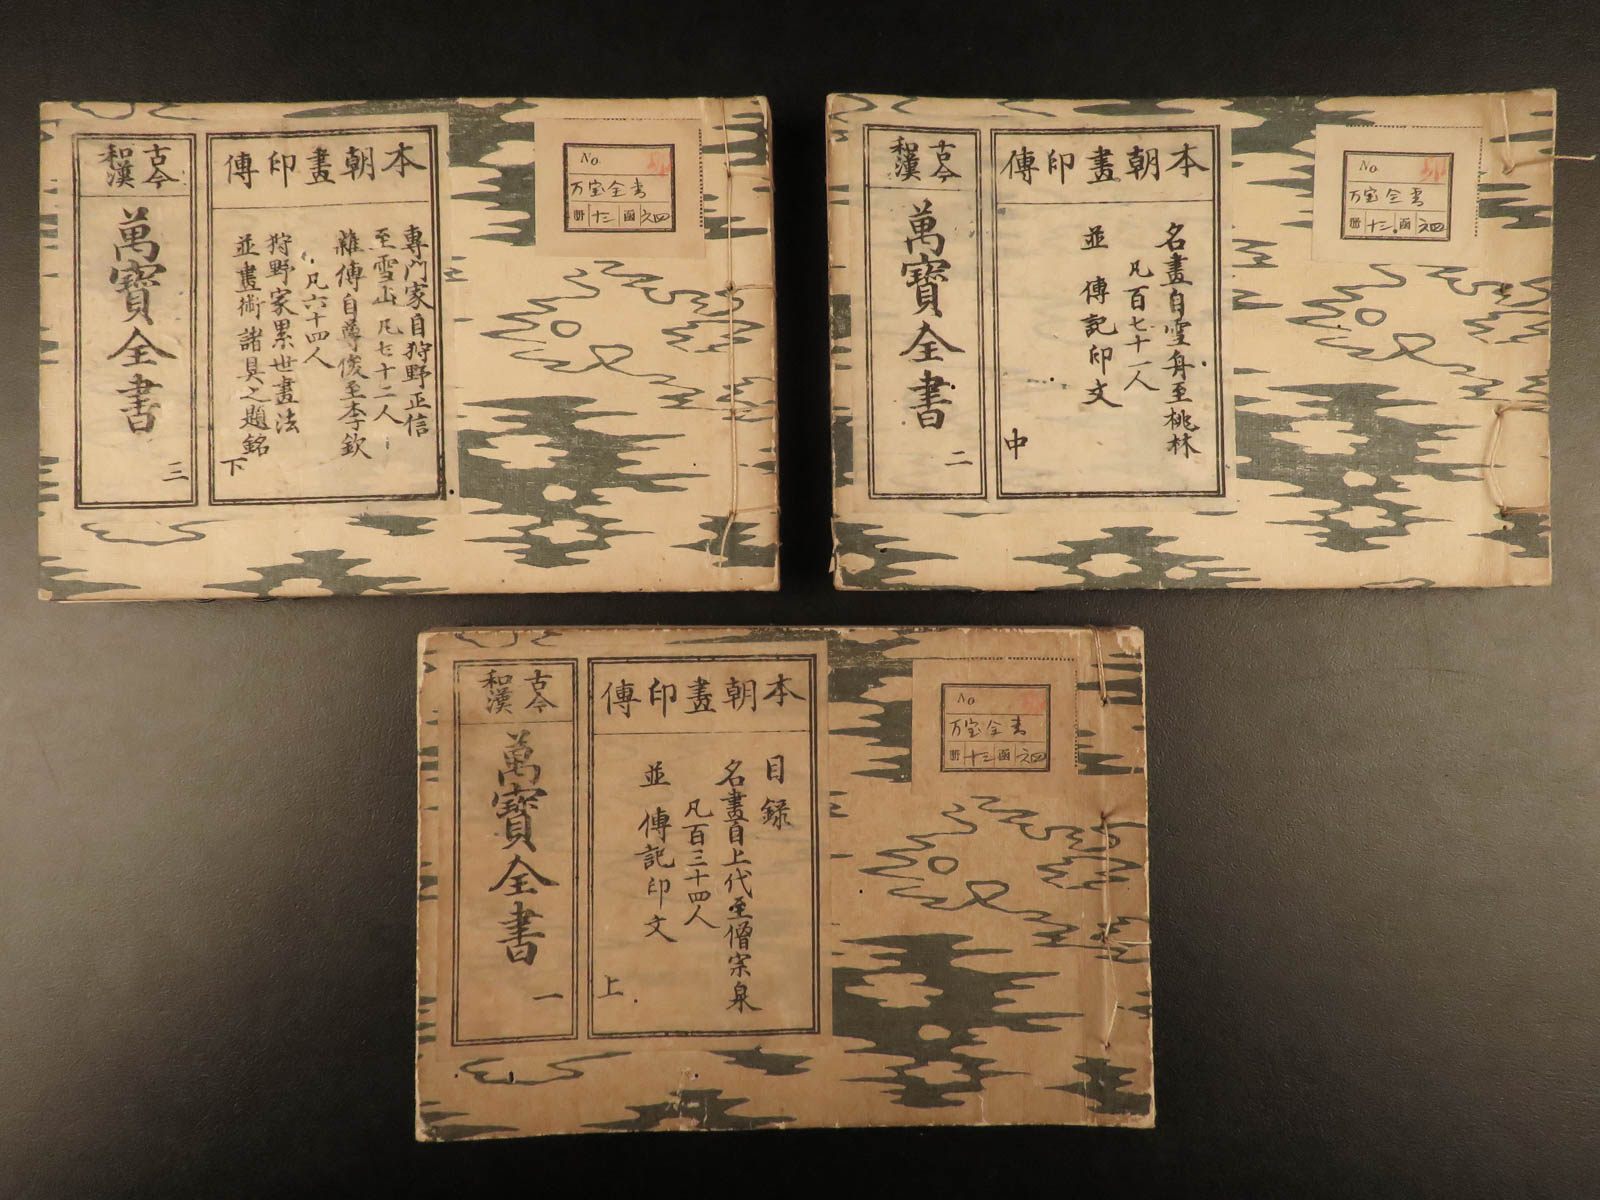 本朝畫印傳
專門家自狩野正信
至雪山凡七十二人
雜傳自尊俊至李欽
凡六十四人
狩野家累世畫法
並畫術諸具之題銘
下
古今
和漢
萬寶全書
三
No.
万宝全書
冊 十三 函 六四
本朝畫印傳
名畫自雪舟至桃林
凡百七十一人
並 傳記印文
中
古今
和漢
萬寶全書
二
No.
万宝全書
冊 十三 函 六四
本朝畫印傳
目録
名畫自上代至僧宗泉
凡百三十四人
並 傳記印文
上
古今
和漢
萬寶全書
一
No
万宝全書
冊 十三 函 六四